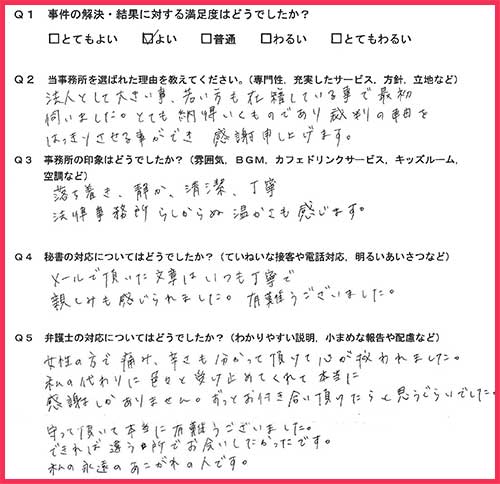 Q1 事件の解決・結果に対する満足度はどうでしたか？
□とてもよい ☑よい □普通 □わるい □とてもわるい
Q2 当事務所を選ばれた理由を教えてください。（専門性，充実したサービス，方針，立地など）
法人として大きい事、若い方も在籍している事で最初
伺いました。とても納得いくものであり裁判の理由を
はっきりさせる事ができ 感謝申し上げます。
Q3 事務所の印象はどうでしたか？（雰囲気，BGM，カフェドリンクサービス，キッズルーム，
空調など）
落ち着き、静か、清潔、丁寧
法律事務所らしからぬ温かさも感じます。
Q4 秘書の対応についてはどうでしたか？（ていねいな接客や電話対応，明るいあいさつなど）
メールで頂いた文章はいつも丁寧で
親しみも感じられました。有難うございました。
Q5 弁護士の対応についてはどうでしたか？（わかりやすい説明，小まめな報告や配慮など）
女性の方で痛み、辛さも分かって頂けて心が救われました。
私の代わりに色々と受け止めてくれて本当に
感謝しかありません。ずっとお付き合い頂けたらと思うぐらいでした。
守って頂いて本当に有難うございました。
できれば違う場所でお会いしたかったです。
私の永遠のあこがれの人です。